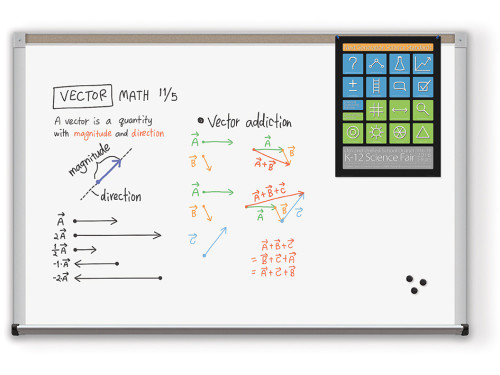 VECTOR MATH 11/5
A vector is a quantity
with magnitude and direction
magnitude
direction
A⃗
2A⃗
½A⃗
-1·A⃗
-2·A⃗
Vector addiction
A⃗
B⃗
A⃗
B⃗
A⃗+B⃗
A⃗
B⃗
C⃗
A⃗+B⃗+C⃗
A⃗
B⃗
C⃗
A⃗+B⃗+C⃗
= B⃗+C⃗+A⃗
= A⃗+C⃗+B⃗
K-12 Science Fair